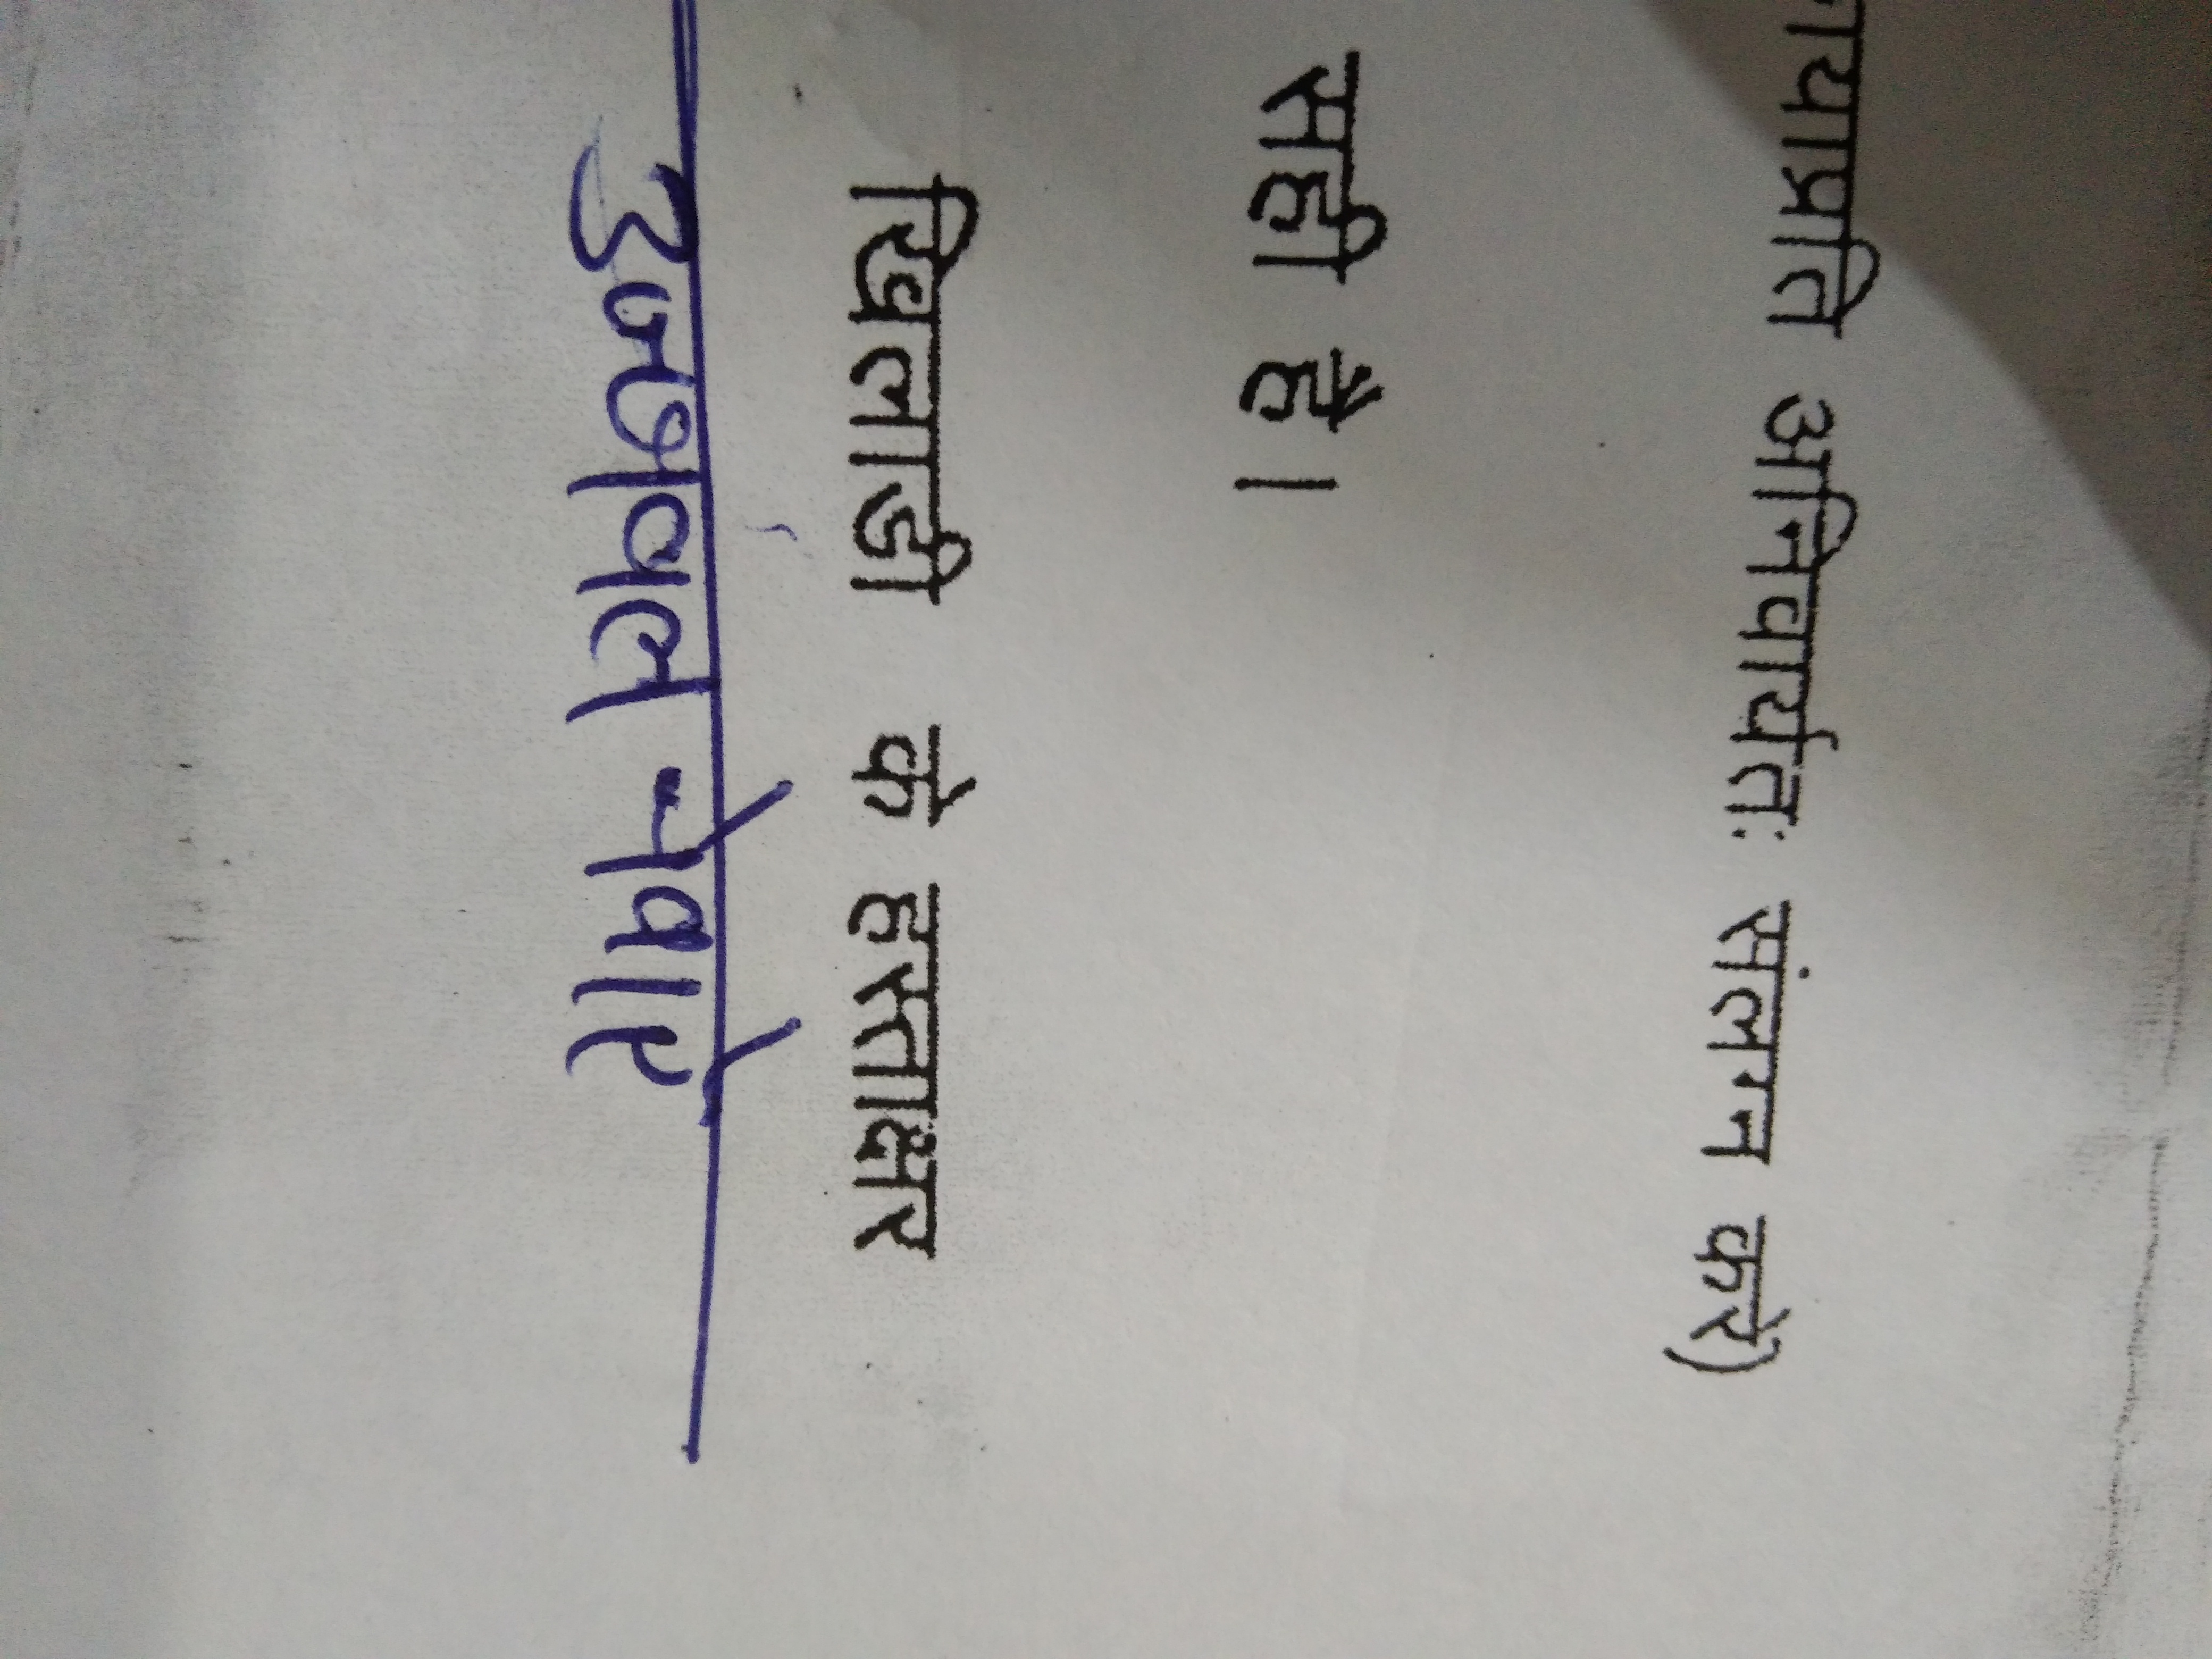 ायाप्रति अनिवार्यतः संलग्न करें)
सही है।
खिलाडी के हस्ताक्षर
उज्जवल नेवारे